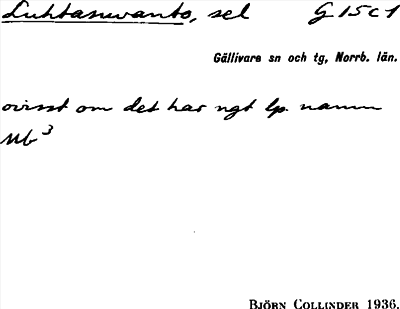 Luhtasuvanto, sel G 15 c 1
Gällivare sn och tg, Norrb. län.
ovisst om det har ngt lp. namn
Nb³
BJÖRN COLLINDER 1936.